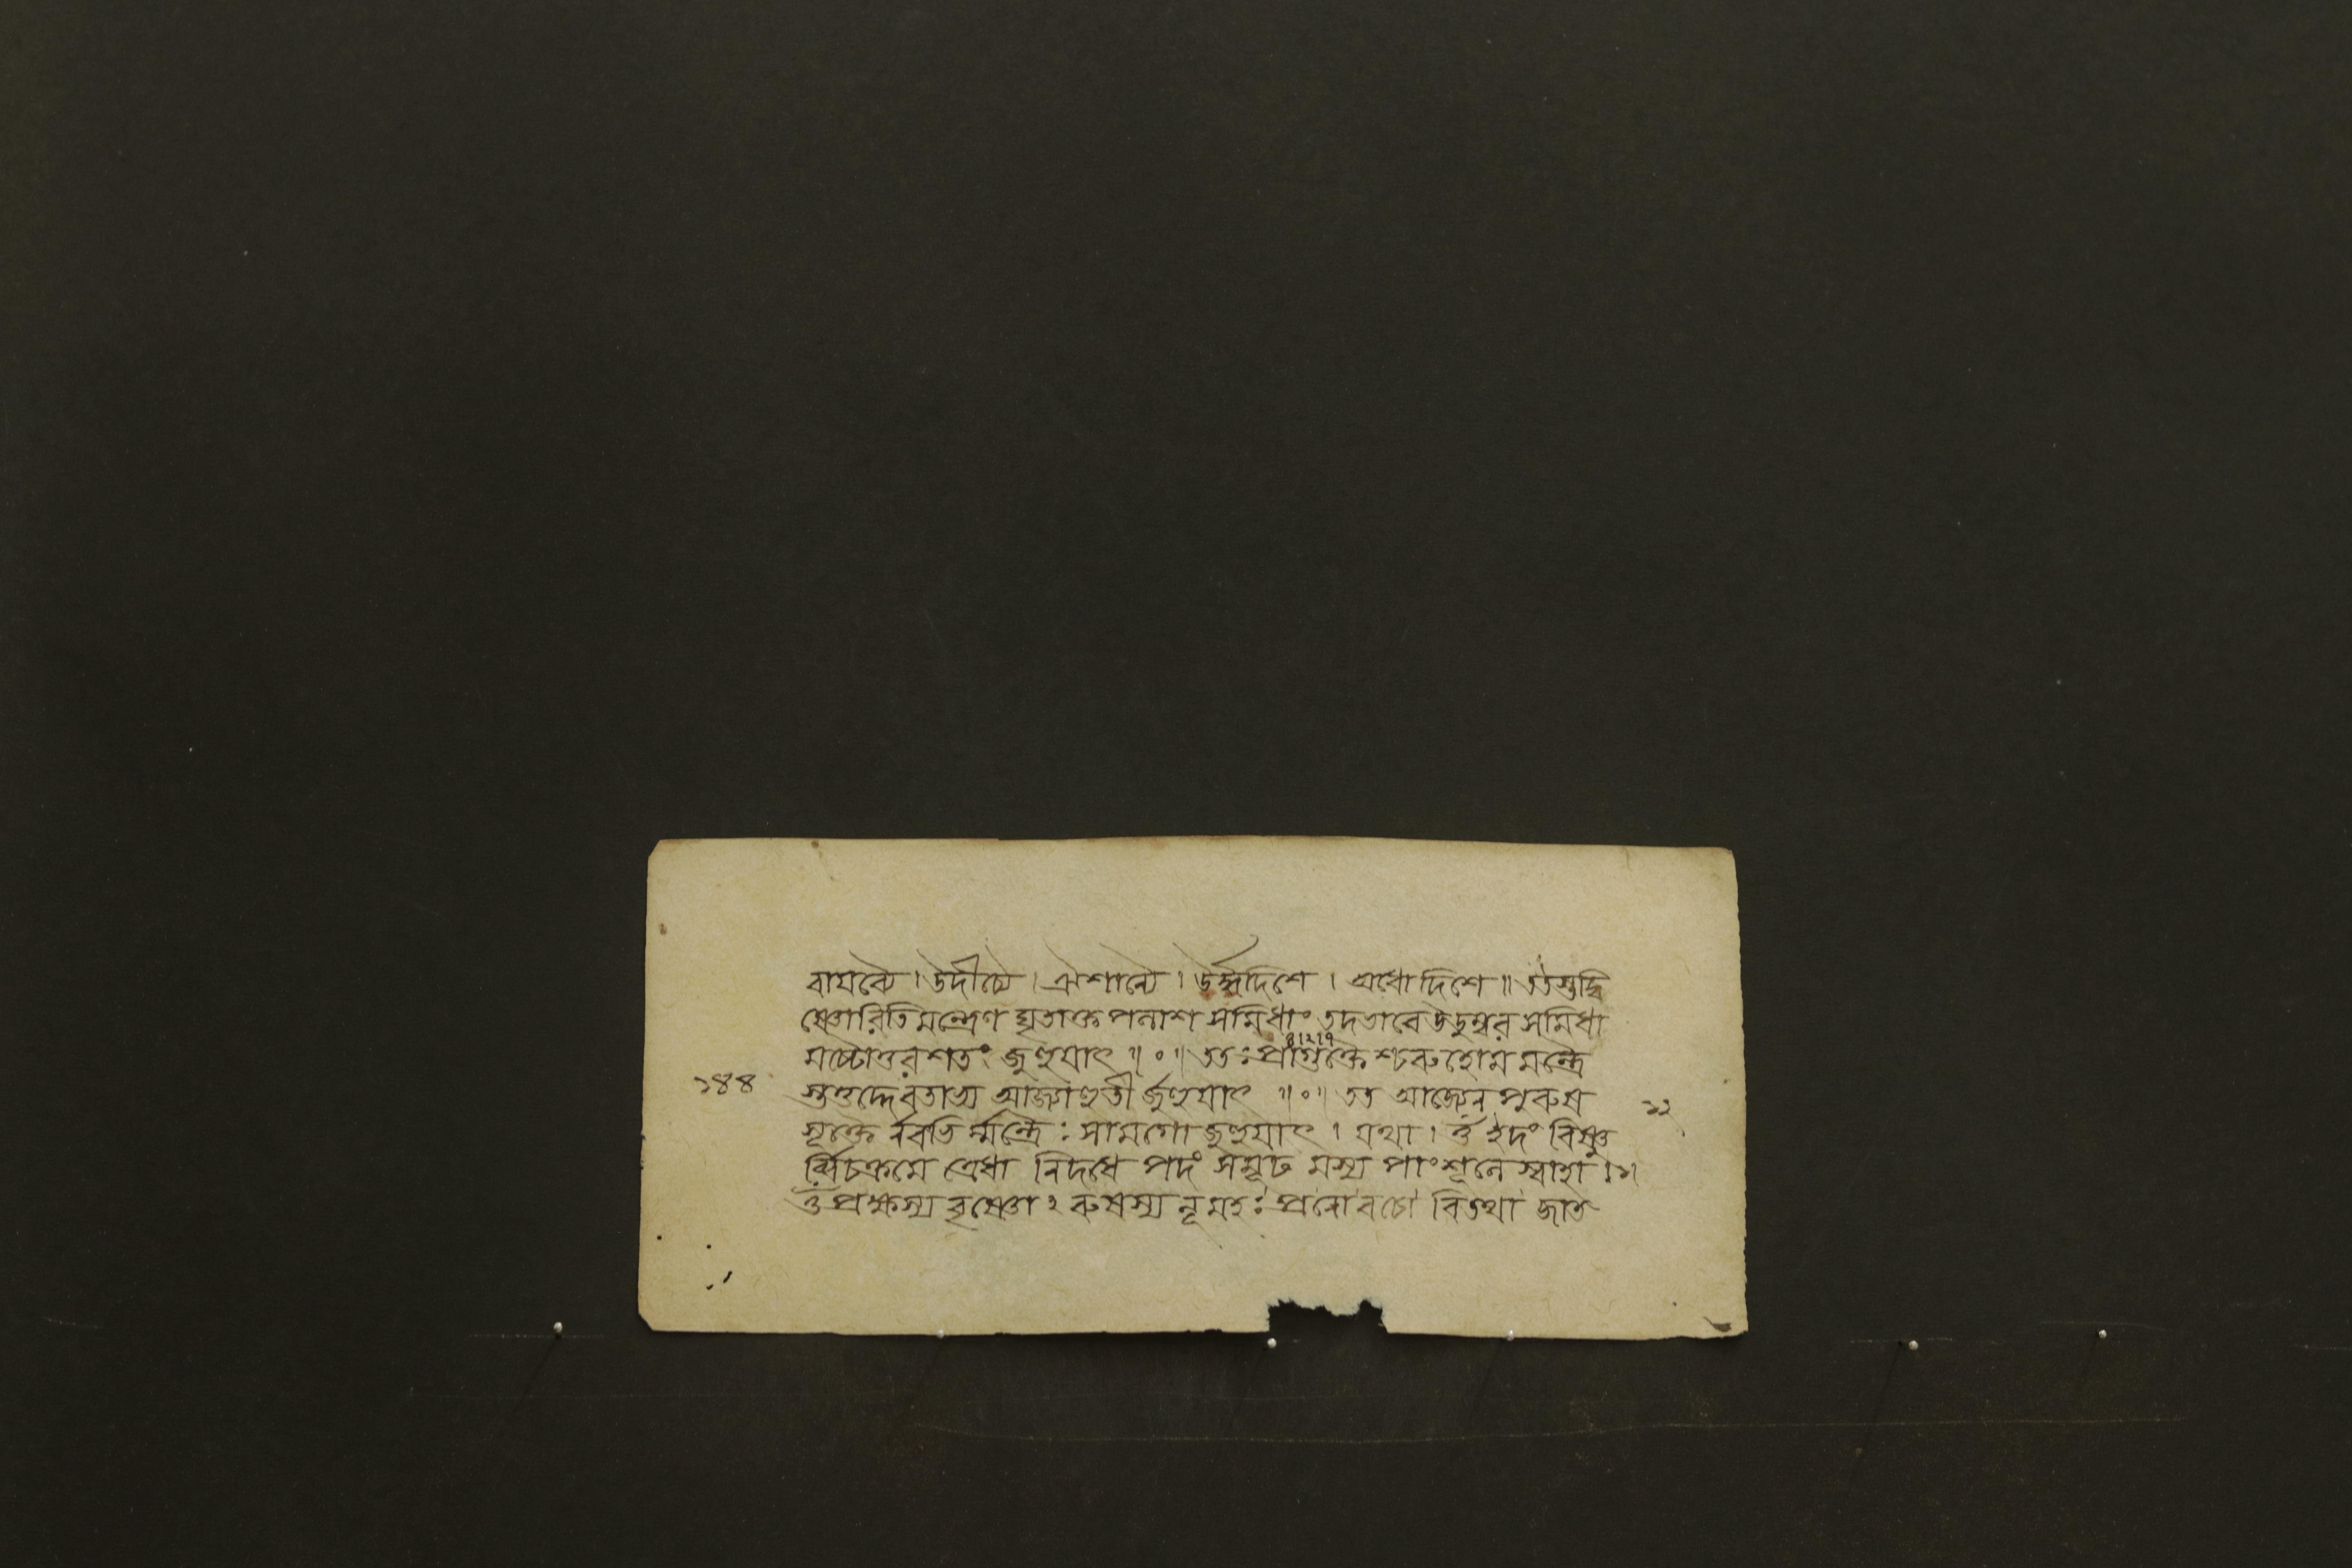 বায়ব্যৈ । উদীচ্যৈ । ঐশান্যৈ । উর্দ্ধদিশে । অধোদিশে ॥ ততস্তদ্বি
ষ্ণোরিতি মন্ত্রেণ ঘৃতাক্ত পলাশ সমিধাং তদভাবে উডুম্বর সমিধা
মষ্টোত্তর শতং জুহুয়াৎ ॥ ০ ॥ ততঃ প্রাগুক্তৈ শ্চরুহোম মন্ত্রৈ
৪।২।৭
১৪৪
স্তত্তদ্দেবতাভ্য আজ্যাহুতী র্জুহুয়াৎ ॥ ০ ॥ তত আজ্যেন পুরুষ
১২
সূক্তে র্নবভি র্ম্মন্ত্রৈঃ সামগো জুহুয়াৎ । যথা । ওঁ ইদং বিষ্ণু
র্ব্বিচক্রমে ত্রেধা নিদধে পদং সমূঢ় মস্য পাংশুলে স্বাহা ।১।
ওঁ প্রক্ষস্য বৃষ্ণো ২ রুষস্য নূ মহঃ প্রনো বচো বিদথা জাত